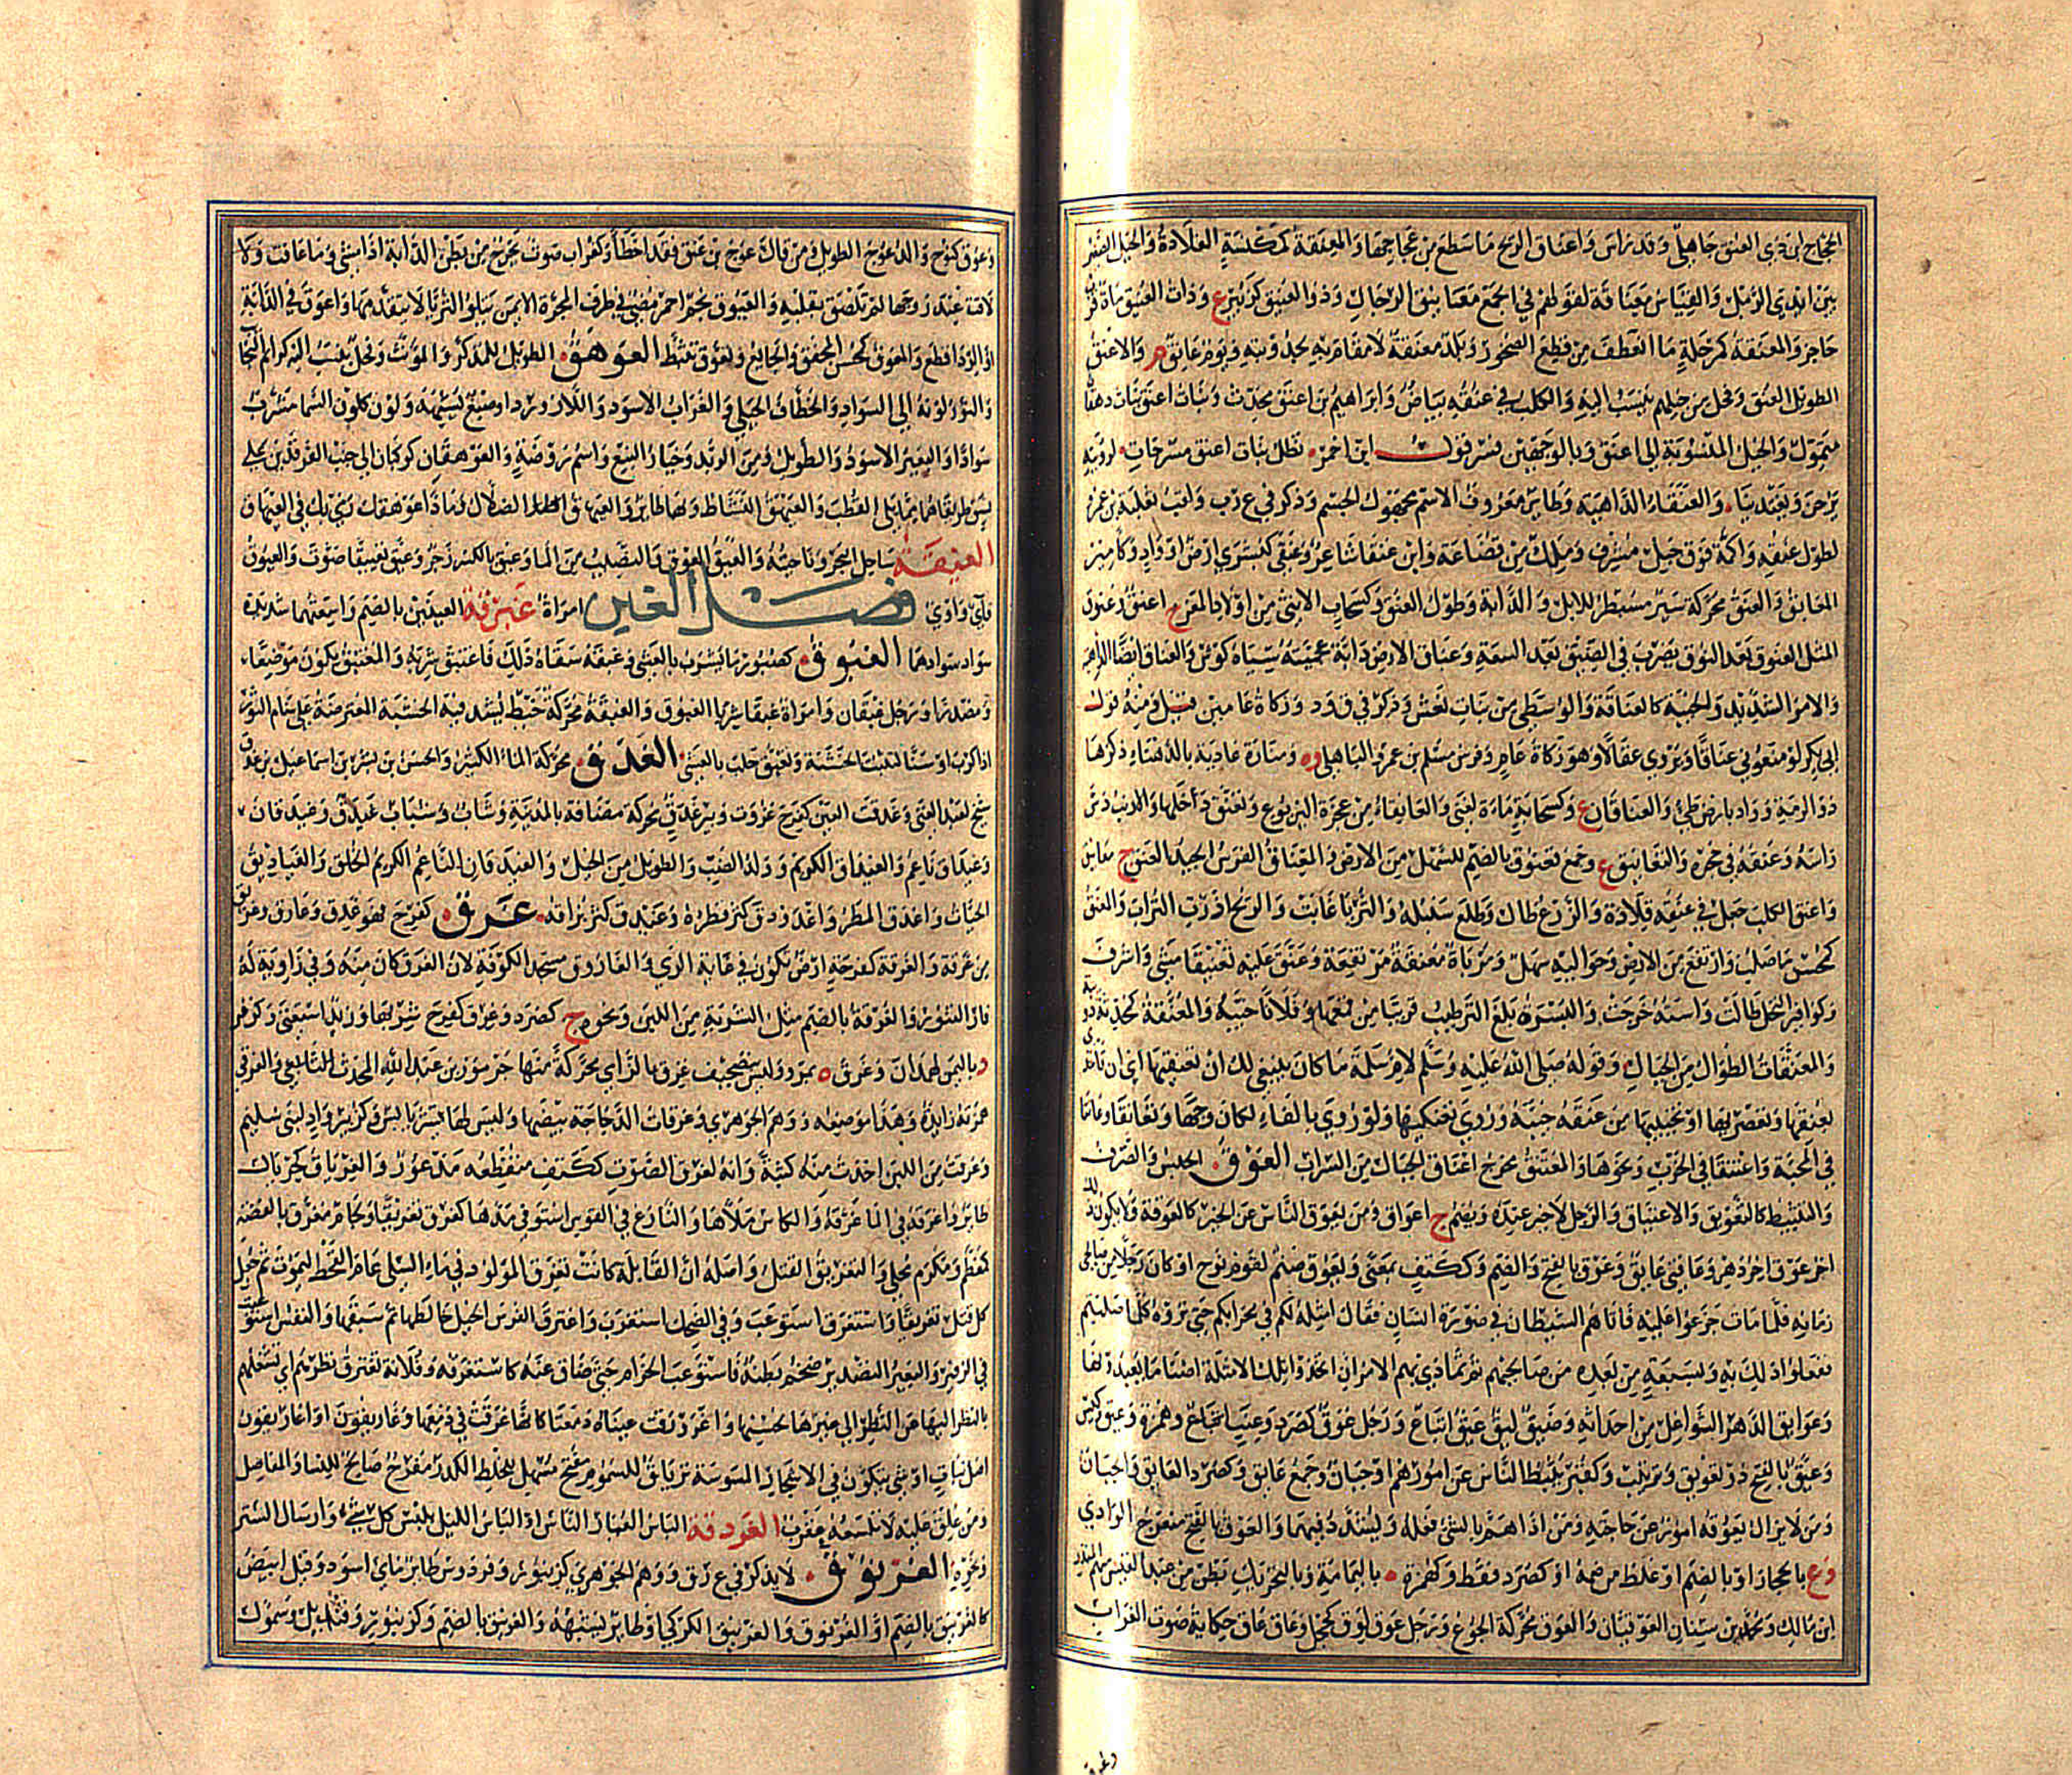 الحجاج ابن ذي العنق جاهلي وقد رأس وأعناق الريح ما سطع من عجاجها والمعنقة كمكنسة القلادة والحبل الصغير
بين أيدي الرمل والقياس معناقة لقولهم في الجمع معانيق الرمال وذو العنيق كزبير ع وذات العنيق ماءة قرب
حاجر والمعنقة كمرحلة ما انعطف من قطع الصخور وبلد معنقة لا مقام به لجدوبته ويوم عانق م والأعنق
الطويل العنق وفحل من خيلهم ينسب إليه والكلب في عنقه بياض وإبراهيم بن أعنق محدث وبنات أعنق بنات دهقان
متمول والخيل المنسوبة إلى أعنق وبالوجهين فسر قول ابن أحمر تظل بنات أعنق مسرجات لرؤيته
يرحن ويغتدينا والعنقاء الداهية وطائر معروف الاسم مجهول الجسم وذكر في ع ر ب ولقب ثعلبة بن عمرو
لطول عنقه وأكمة فوق جبل مشرف وملك من قضاعة وابن عنقاء شاعر وعنقى كبشرى أرض أو واد وكأمير
المعانق والعنق محركة سير مسبطر للإبل والدابة وطول العنق وكسحاب الأنثى من أولاد المعز ج أعنق وعنوق
المثل العنوق بعد النوق يضرب في الضيق بعد السعة وعناق الأرض دابة عجمية سياه كوش والعناق أيضا الداهية
والأمر الشديد والخيبة كالعناقة والوسطى من بنات نعش وذكر في ق و د وزكاة عامين قيل ومنه قول
أبي بكر لو منعوني عناقا ويروى عقالا وهو زكاة عام وفرس مسلم بن عمرو الباهلي ومنارة عادية بالدهناء ذكرها
ذو الرمة وواد بأرض طيئ والعناقان ع وكسحابة ماءة لغني والعانقاء من جحرة اليربوع وتعنق دخلها والأرنب دس
رأسه وعنقه في جحره والتعانيق ع وجمع تعنوق بالضم للسهل من الأرض والمعناق الفرس الجيد العنق ج معانيق
وأعنق الكلب جعل في عنقه قلادة والزرع طال وطلع سنبله والثريا غابت والريح أذرت التراب والمعنق
كمحسن ما صلب وارتفع من الأرض وحواليه سهل ومرباة معنقة مرتفعة وعنق عليه تعنيقا مشى وأشرف
وكوافير النخل طالت واسته خرجت والبسرة بلغ الترطيب قريبا من قمعها وفلانا خيبه والمعنقة كمحدثة دويبة
والمعنقات الطوال من الجبال وقوله صلى الله عليه وسلم لأم سلمة ما كان ينبغي لك أن تعنقيها أي أن تأخذي
بعنقها وتعصريها أو تخيبيها من عنقه خيبه وروي تعنكيها ولو روي بالفاء لكان وجها وتعانقا وعانقا
في المحبة واعتنقا في الحرب ونحوها والمعتنق مخرج أعناق الجبال من السراب العوق الحبس والصرف
والتثبيط كالتعويق والاعتياق والرجل لا خير عنده ويضم ج أعواق ومن يعوق الناس عن الخير كالعوقة ولا يكون ذلك
آخر عوق آخر دهر وعاقني عائق وعوق بالفتح والضم وككتف بمعنى ويعوق صنم لقوم نوح أو كان رجلا من صالحي
زمانه فلما مات جزعوا عليه فأتاهم الشيطان في صورة إنسان فقال أمثله لكم في محرابكم حتى تروه كلما صليتم
ففعلوا ذلك به وبسبعة من بعده من صالحيهم ثم تمادى بهم الأمر إلى أن اتخذوا تلك الأمثلة أصناما يعبدونها
وعوائق الدهر الشواغل من أحداثه وضيق ليق عيق إتباع ورجل عوق كصرد وعنب وهمزة وعيق ككيس
وعيق بالفتح ذو تعويق وتريث وكقبر يثبط الناس عن أمورهم أو جبان وجمع عائق وكصرد العائق والجبان
ومن لا يزال يعوقه أمور عن حاجته ومن إذا هم بالشيء فعله ويشدد فيهما والعوق بالفتح منعرج الوادي
وع بالحجاز أو بالضم أو غلط من ضمه أو كصرد فقط وكهمزة ة باليمامة وبالتحريك بطن من عبد القيس منهم المنذر
ابن مالك ومحمد بن سنان العوقيان والعوق محركة الجوع ورجل عوق لوق كخجل وعاق عاق حكاية صوت الغراب
وعوق كنوح والد عوج الطويل ومن قال عوج بن عنق فقد أخطأ وكغراب صوت يخرج من بطن الدابة إذا مشى وما عاقت ولا
لاقت عند زوجها لم تلصق بقلبه والعيوق نجم أحمر مضيء في طرف المجرة الأيمن يتلو الثريا لا يتقدمها وأعوق في الدابة
أو الزاد قطع والمعوق كمحسن المخفق والجائع وتعوق تثبط العوهق الطويل للمذكر والمؤنث وفحل ينسب إليه كرائم النجائب
والثور لونه إلى السواد والخطاف الجبلي والغراب الأسود واللازورد أو صبغ يشبهه ولون كلون السماء مشرب
سوادا والبعير الأسود والطويل ومن الربد وخيار النبع واسم روضة والعوهقان كوكبان إلى جنب الفرقدين على
نسق طريقاهما مما يلي القطب والعيهق النشاط وبهاء طائر والعيهاق الضلال وما ذا عوهقك ويحي بك في العيهاق
العيقة ساحل البحر وناحيته والعيق العوق والنصيب من الماء وعيق بالكسر زجر وعيق تعييقا صوت والعيوق
يائي واوي فصل الغين امرأة غبرقة العينين بالضم واسعتهما شديدة
سواد سوادها الغبوق كصبور ما يشرب بالعشي وغبقه سقاه ذلك فاغتبق شربه والمغتبق يكون موضعا
ومصدرا ورجل غبقان وامرأة غبقى شربا الغبوق والغبقة محركة خيط يشد فيه الخشبة المعترضة على سنام الثور
إذا كرب أو سنا لتثبت الخشبة وتغبق حلب بالعشي الغدق محركة الماء الكثير والحسن بن بشر بن إسماعيل بن غدق
شيخ لعبد الغني وغدقت العين كفرح غزرت وبئر غدق محركة مضافة بالمدينة وشاب وشباب غيدق وغيدقان
وغيداق ناعم والغيداق الكريم وولد الضب والطويل من الخيل والغيدقان الناعم الكريم الخلق والغياديق
الحيات وأغدق المطر واغدودق كثر قطره وغيدق كثر بزاقه غرق كفرح فهو غرق وغارق وغريق
من غرقة والغرقة كفرحة أرض تكون في غاية الري والغاروق مسجد الكوفة لأن الغرق كان منه وفي زاوية له
فار التنور والغرقة بالضم مثل الشربة من اللبن ونحوه ج كصرد وغرق كفرح شربها وزيد استغنى وكزفر
د باليمن لهمدان وغرق ة بمرو وليس تصحيف غزق بالزاي محركة منها جرموز بن عبد الله المحدث التابعي والغرقئ
همزته زائدة وهذا موضعه ووهم الجوهري وغرقأت الدجاجة بيضها وليس لها قشر يابس وكزبير واد لبني سليم
وغرقت من اللبن أخذت منه كثبة وإنه لغرق الصوت ككتف منقطعه مذعور والغرياق كجريال
طائر وأغرقه في الماء غرقه والكأس ملأها والنازع في القوس استوفى مدها كغرق تغريقا ولجام مغرق بالفضة
كمعظم ومكرم محلى والتغريق القتل وأصله أن القابلة كانت تغرق المولود في ماء السلى عام القحط ليموت ثم جعل
كل قتل تغريقا واستغرق استوعب وفي الضحك استغرب واغترق الفرس الخيل خالطها ثم سبقها والنفس استوعبه
في الزفير والبعير التصدير ضخم بطنه فاستوعب الحزام حتى ضاق عنه كاستغرقه وفلانة تغترق نظرهم أي تشغلهم
بالنظر إليها عن النظر إلى غيرها لحسنها واغرورقت عيناه دمعتا كأنها غرقت في دمعها وغاريقون أو أغاريقون
أصل نبات أو شيء يتكون في الأشجار المسوسة ترياق للسموم مفتح مسهل للخلط الكدر مفرح صالح للنساء والمفاصل
ومن علق عليه لا تلسعه عقرب الغردقة إلباس الغبار الناس أو إلباس الليل يلبس كل شيء وإرسال الستر
ونحوه الغرنوق لا يذكر في غ ر ق ووهم الجوهري كزنبور وفردوس طائر مائي أسود وقيل أبيض
كالغرنيق بالضم أو الغرنوق والغرنيق الكركي أو طائر يشبهه والغرنيق بالضم وكزنبور وقنديل وسموأل
وغرق